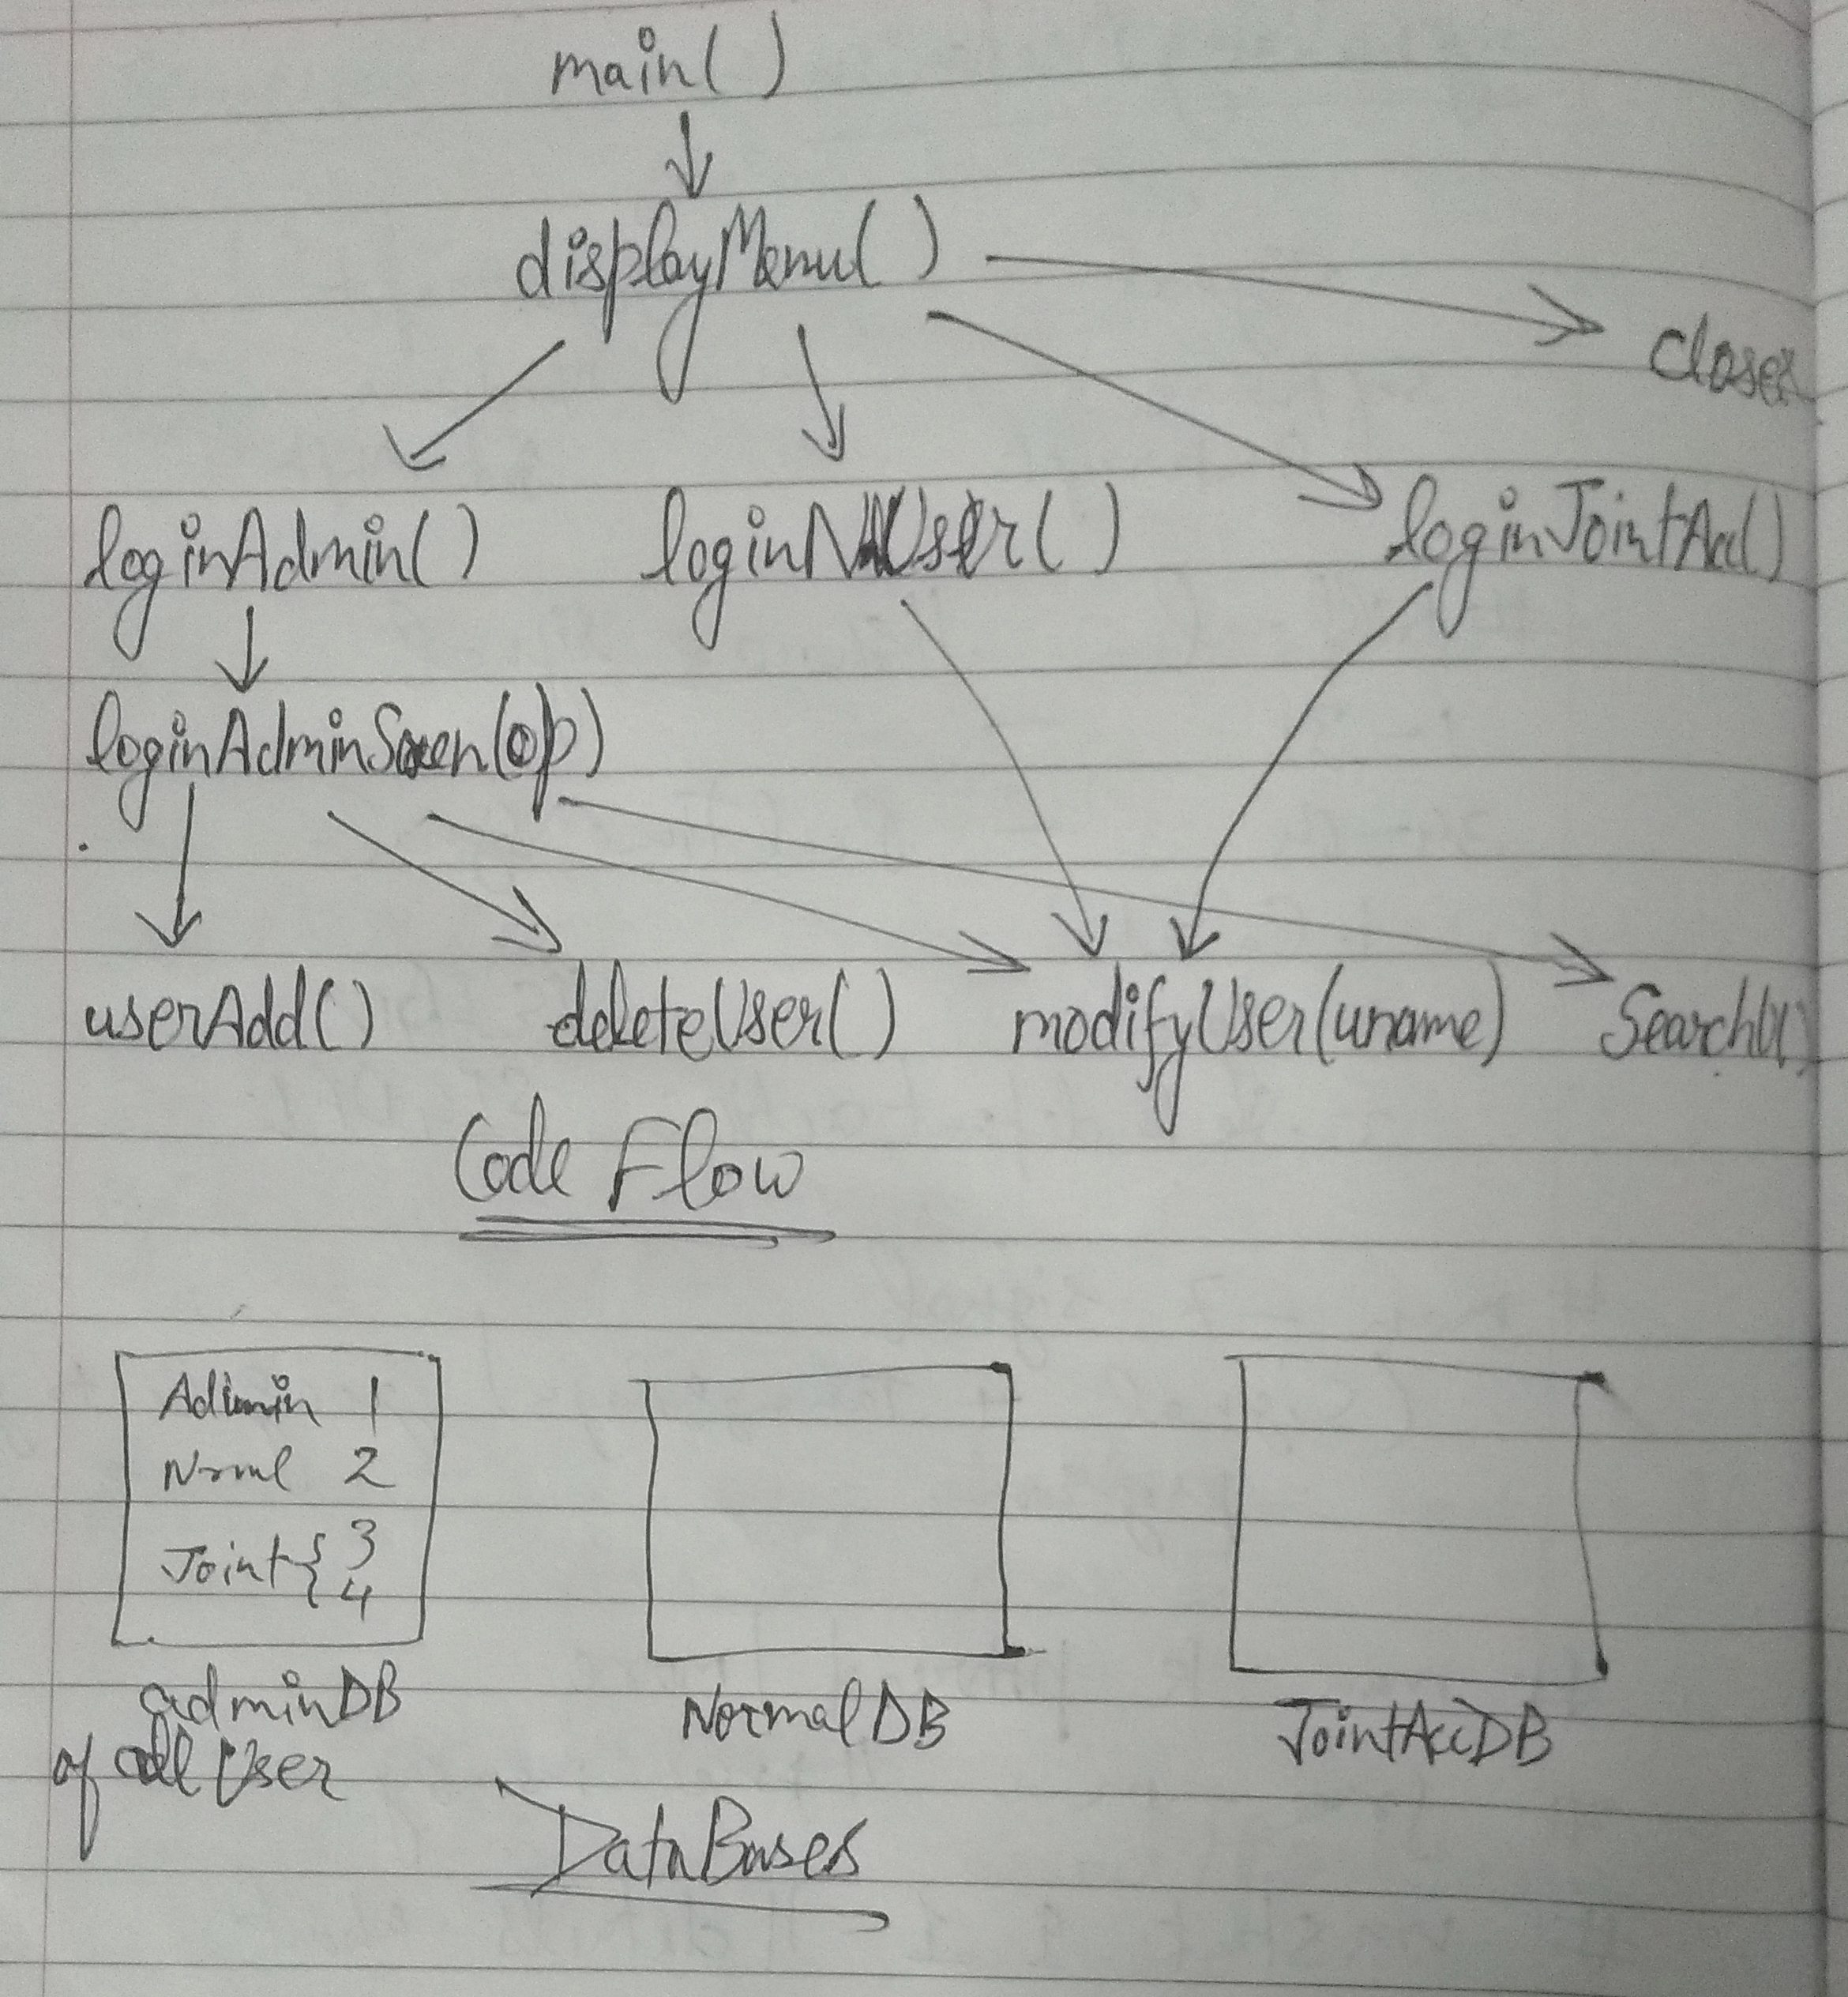 main()
displayMenu()
closes
loginAdmin() loginNUser() loginJointAcc()
loginAdminScreen(op)
userAdd() deleteUser() modifyUser(uname) SearchU()
Code Flow
Admin 1
Norml 2
Joint { 3
4
adminDB NormalDB JointAccDB
of all User
DataBases